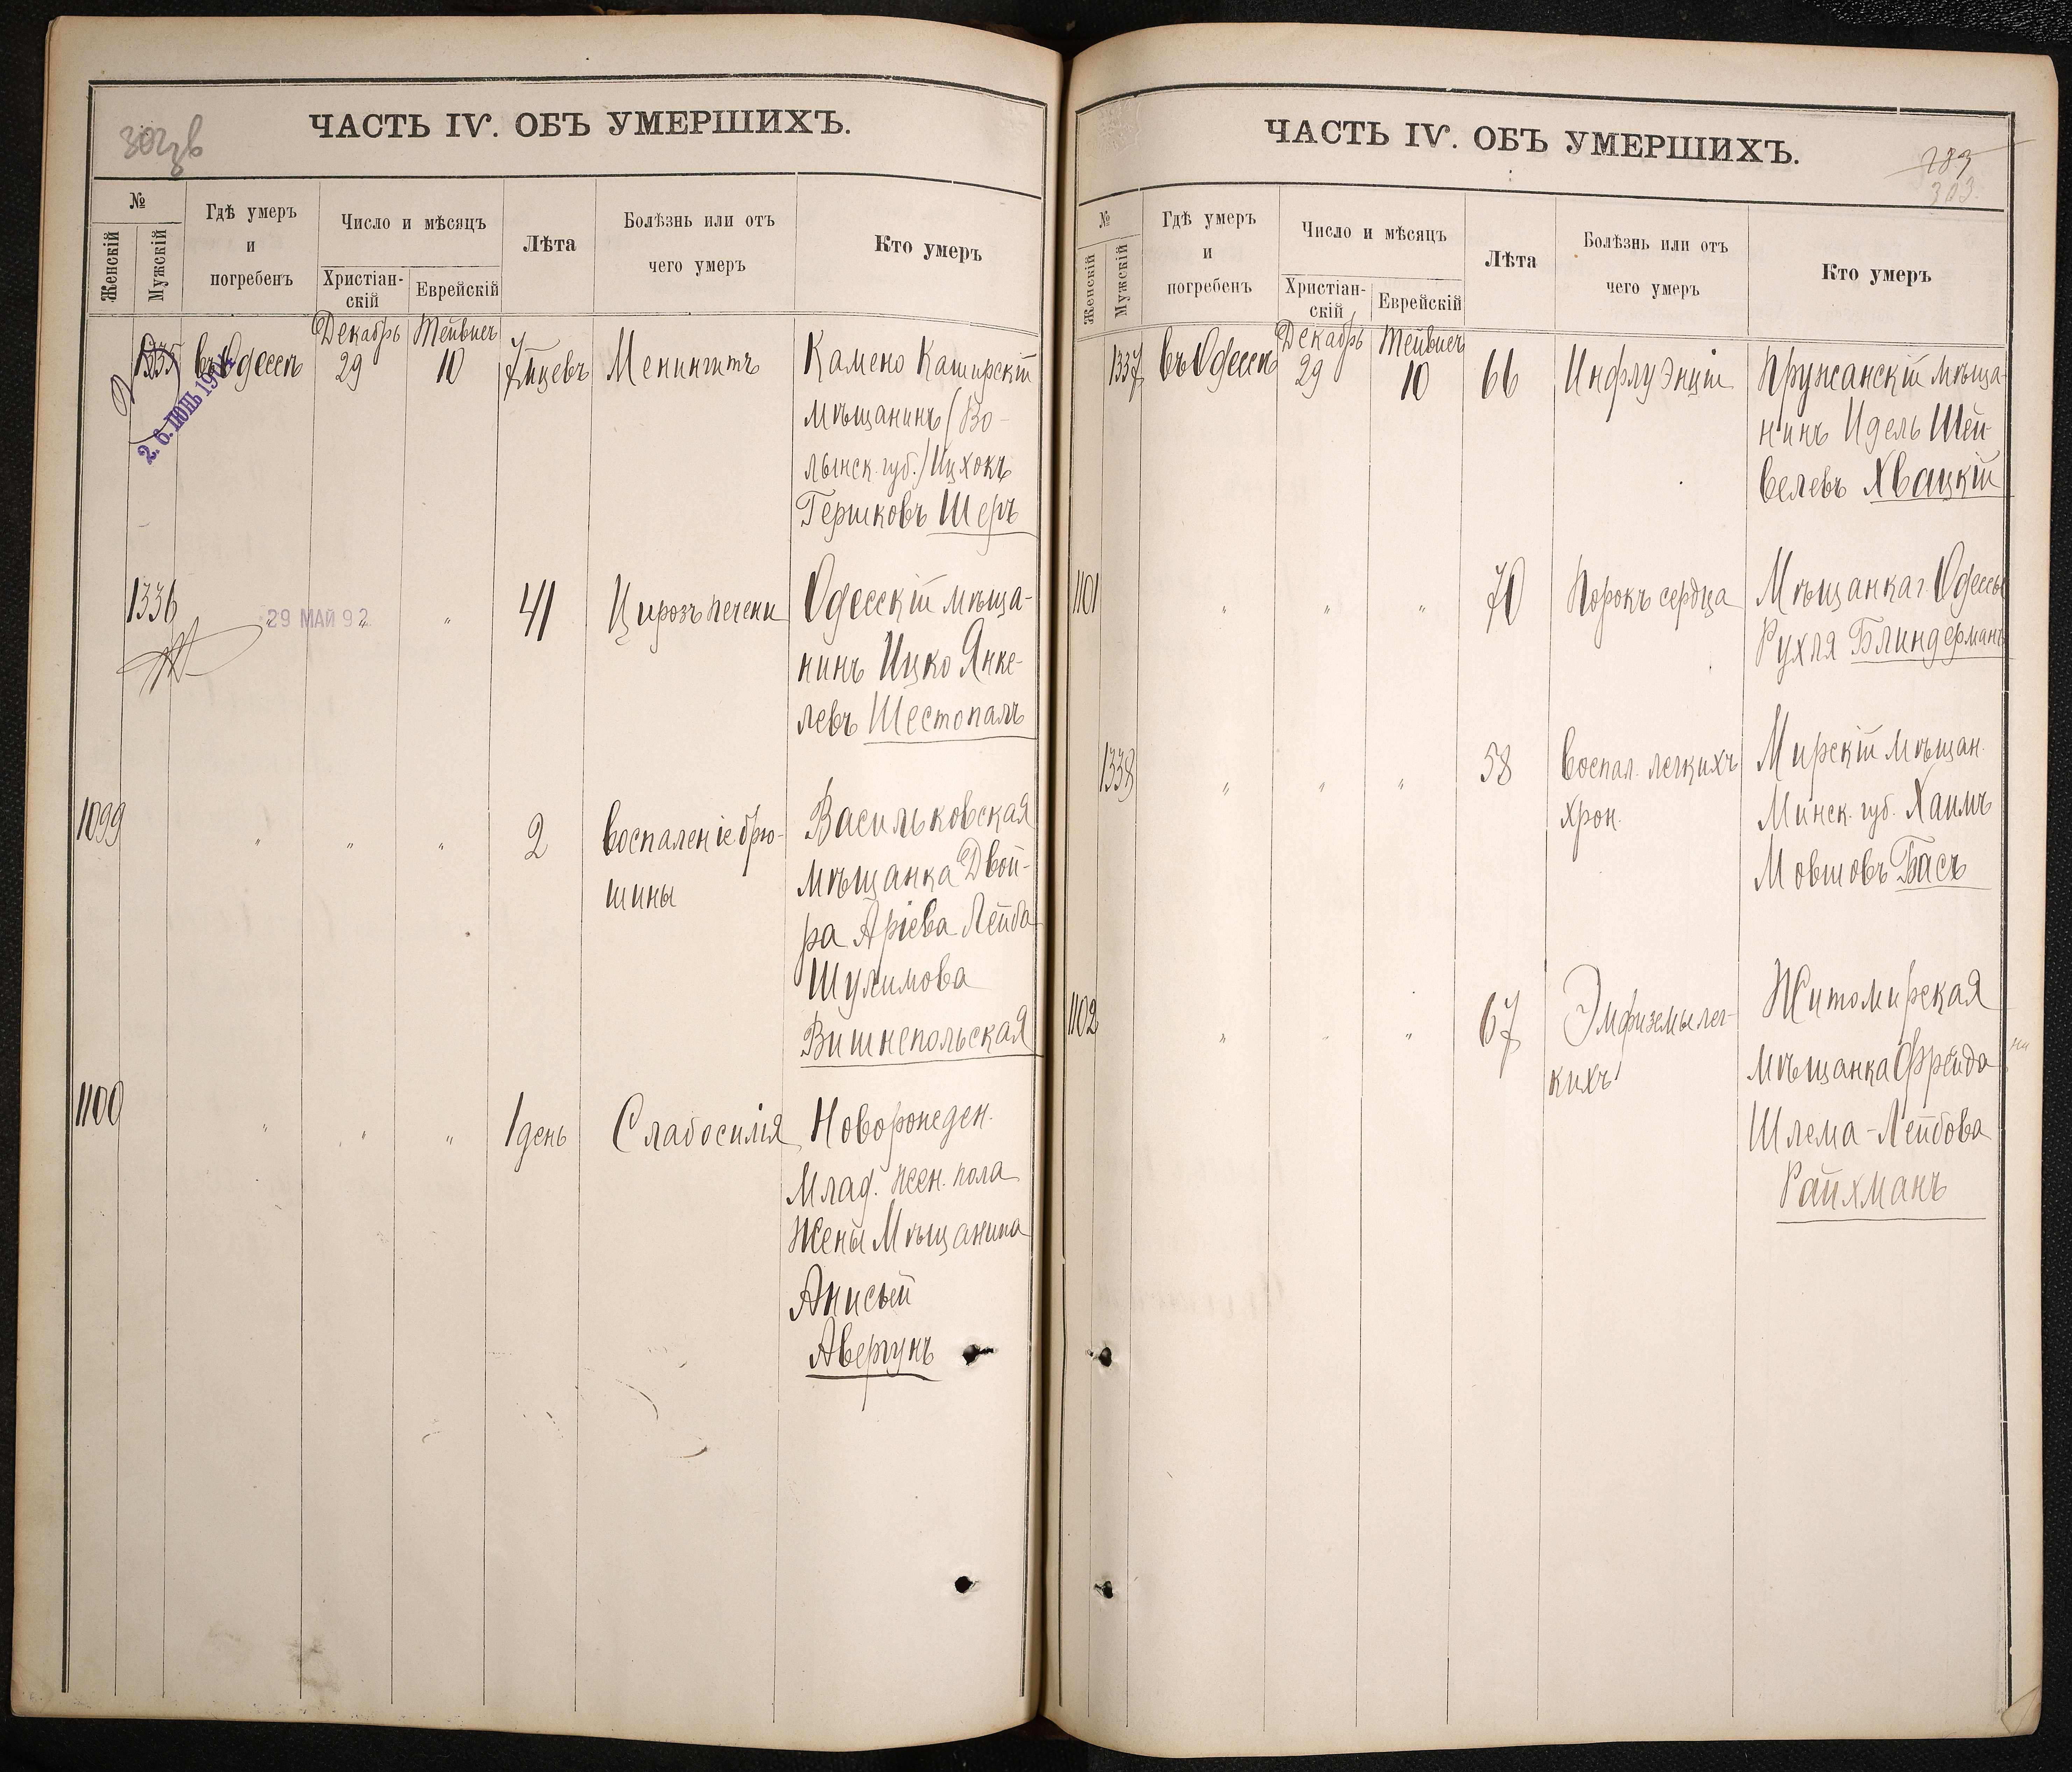 ЧАСТЬ IV. ОБЪ УМЕРШИХЪ.
№
Женскій
Мужскій
Гдѣ умеръ
и
погребенъ
Число и мѣсяцъ
Христіан-
скій
Еврейскій
Лѣта
Болѣзнь или отъ
чего умеръ
Кто умеръ
Декабрь
Тейвись
1335
въ Одессѣ
29
10
7 мцевъ
Менингитъ
Камено Каширскій
мѣщанинъ (Во-
лынск. губ.) Ицхокъ
Гершковъ Шеръ
26 ІЮНЬ 1904
1336
29 МАЙ 92
"
"
"
41
Цирозъ печени
Одесскій мѣща-
нинъ Ицко Янке-
левъ Шестопалъ
1099
"
"
"
2
воспаленіе брю-
шины
Васильковская
мѣщанка Двой-
ра Аріева Лейба
Шулимова
Вишнепольская
1100
"
"
"
1 день
Слабосилія
Новорожден.
Млад. жен. пола
Жены Мѣщанина
Анисьей
Авергунъ
ЧАСТЬ IV. ОБЪ УМЕРШИХЪ.
283
303.
№
Женскій
Мужскій
Гдѣ умеръ
и
погребенъ
Число и мѣсяцъ
Христіан-
скій
Еврейскій
Лѣта
Болѣзнь или отъ
чего умеръ
Кто умеръ
Декабрь
Тейвись
1337
въ Одессѣ
29
10
66
Инфлуэнціи
Пружанскій мѣща-
нинъ Идель Шей-
велевъ Хвацкій
1101
"
"
"
70
Порокъ сердца
Мѣщанка г. Одессы
Рухля Блиндерманъ
1338
"
"
"
58
воспал. легкихъ
хрон.
Мирскій мѣщан.
Минск. губ. Хаимъ
Мовшовъ Басъ
1102
"
"
"
67
Эмфиземы лег-
кихъ
Житомирская
мѣщанка Фрейда
Шлема-Лейбова
Райхманъ